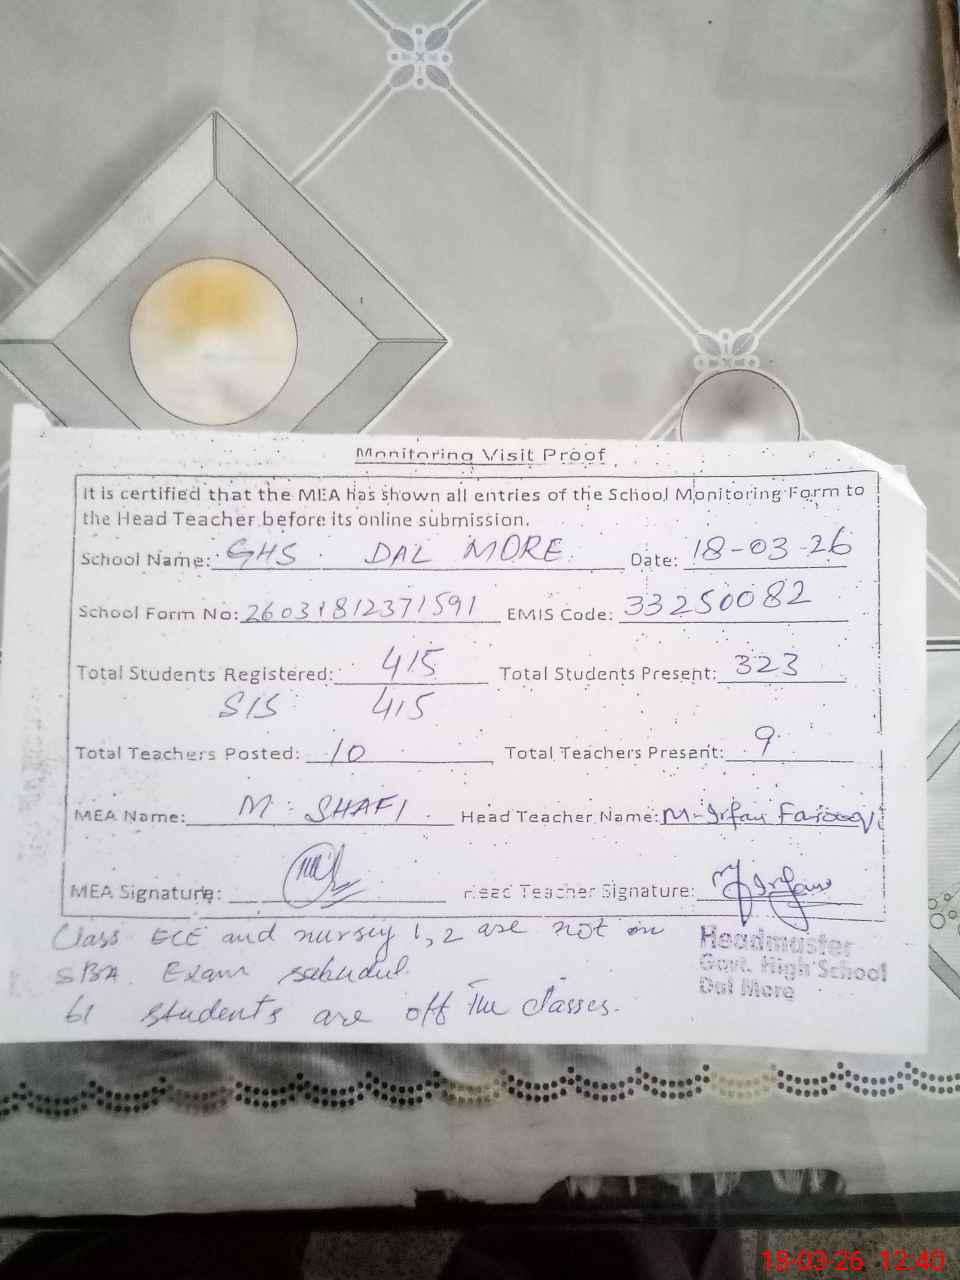 Monitoring Visit Proof
It is certified that the MEA has shown all entries of the School Monitoring Form to
the Head Teacher before its online submission.
School Name: GHS DAL MORE Date: 18-03-26
School Form No: 26031812371591 EMIS Code: 33250082
Total Students Registered: 415 Total Students Present: 323
SIS 415
Total Teachers Posted: 10 Total Teachers Present: 9
MEA Name: M. SHAFI Head Teacher Name: M-Irfan Farooqi
MEA Signature: Head Teacher Signature: M Irfan
Class ECE and nursey 1,2 are not in
SBA. Exam
61 students are off the classes.
Headmaster
Govt. High School
Dal More
18-03-26 12:40